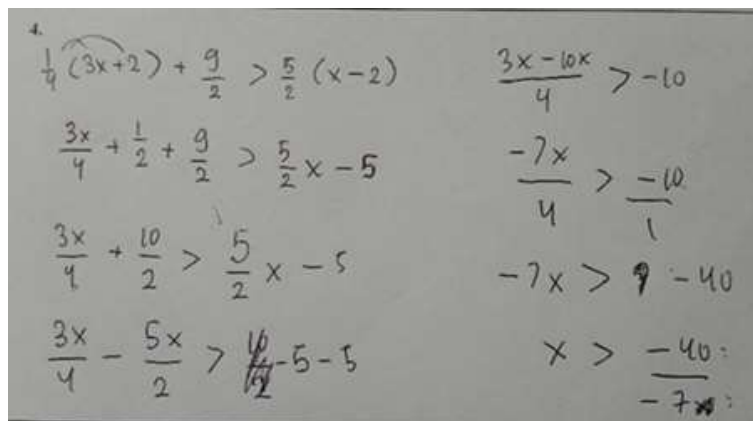 4.
1/4 (3x+2) + 9/2 > 5/2 (x-2)
3x/4 + 1/2 + 9/2 > 5/2 x - 5
3x/4 + 10/2 > 5/2 x - 5
3x/4 - 5x/2 > -5 - 5
3x - 10x/4 > -10
-7x/4 > -10/1
-7x > -40
x > -40/-7